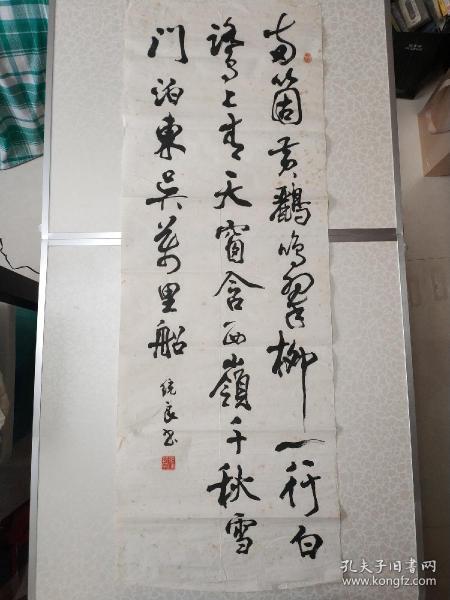 两箇黄鸝鳴翠柳一行白
鷺上青天窗含西嶺千秋雪
门泊東吴萬里船
孔夫子旧书网
www.kongfz.com